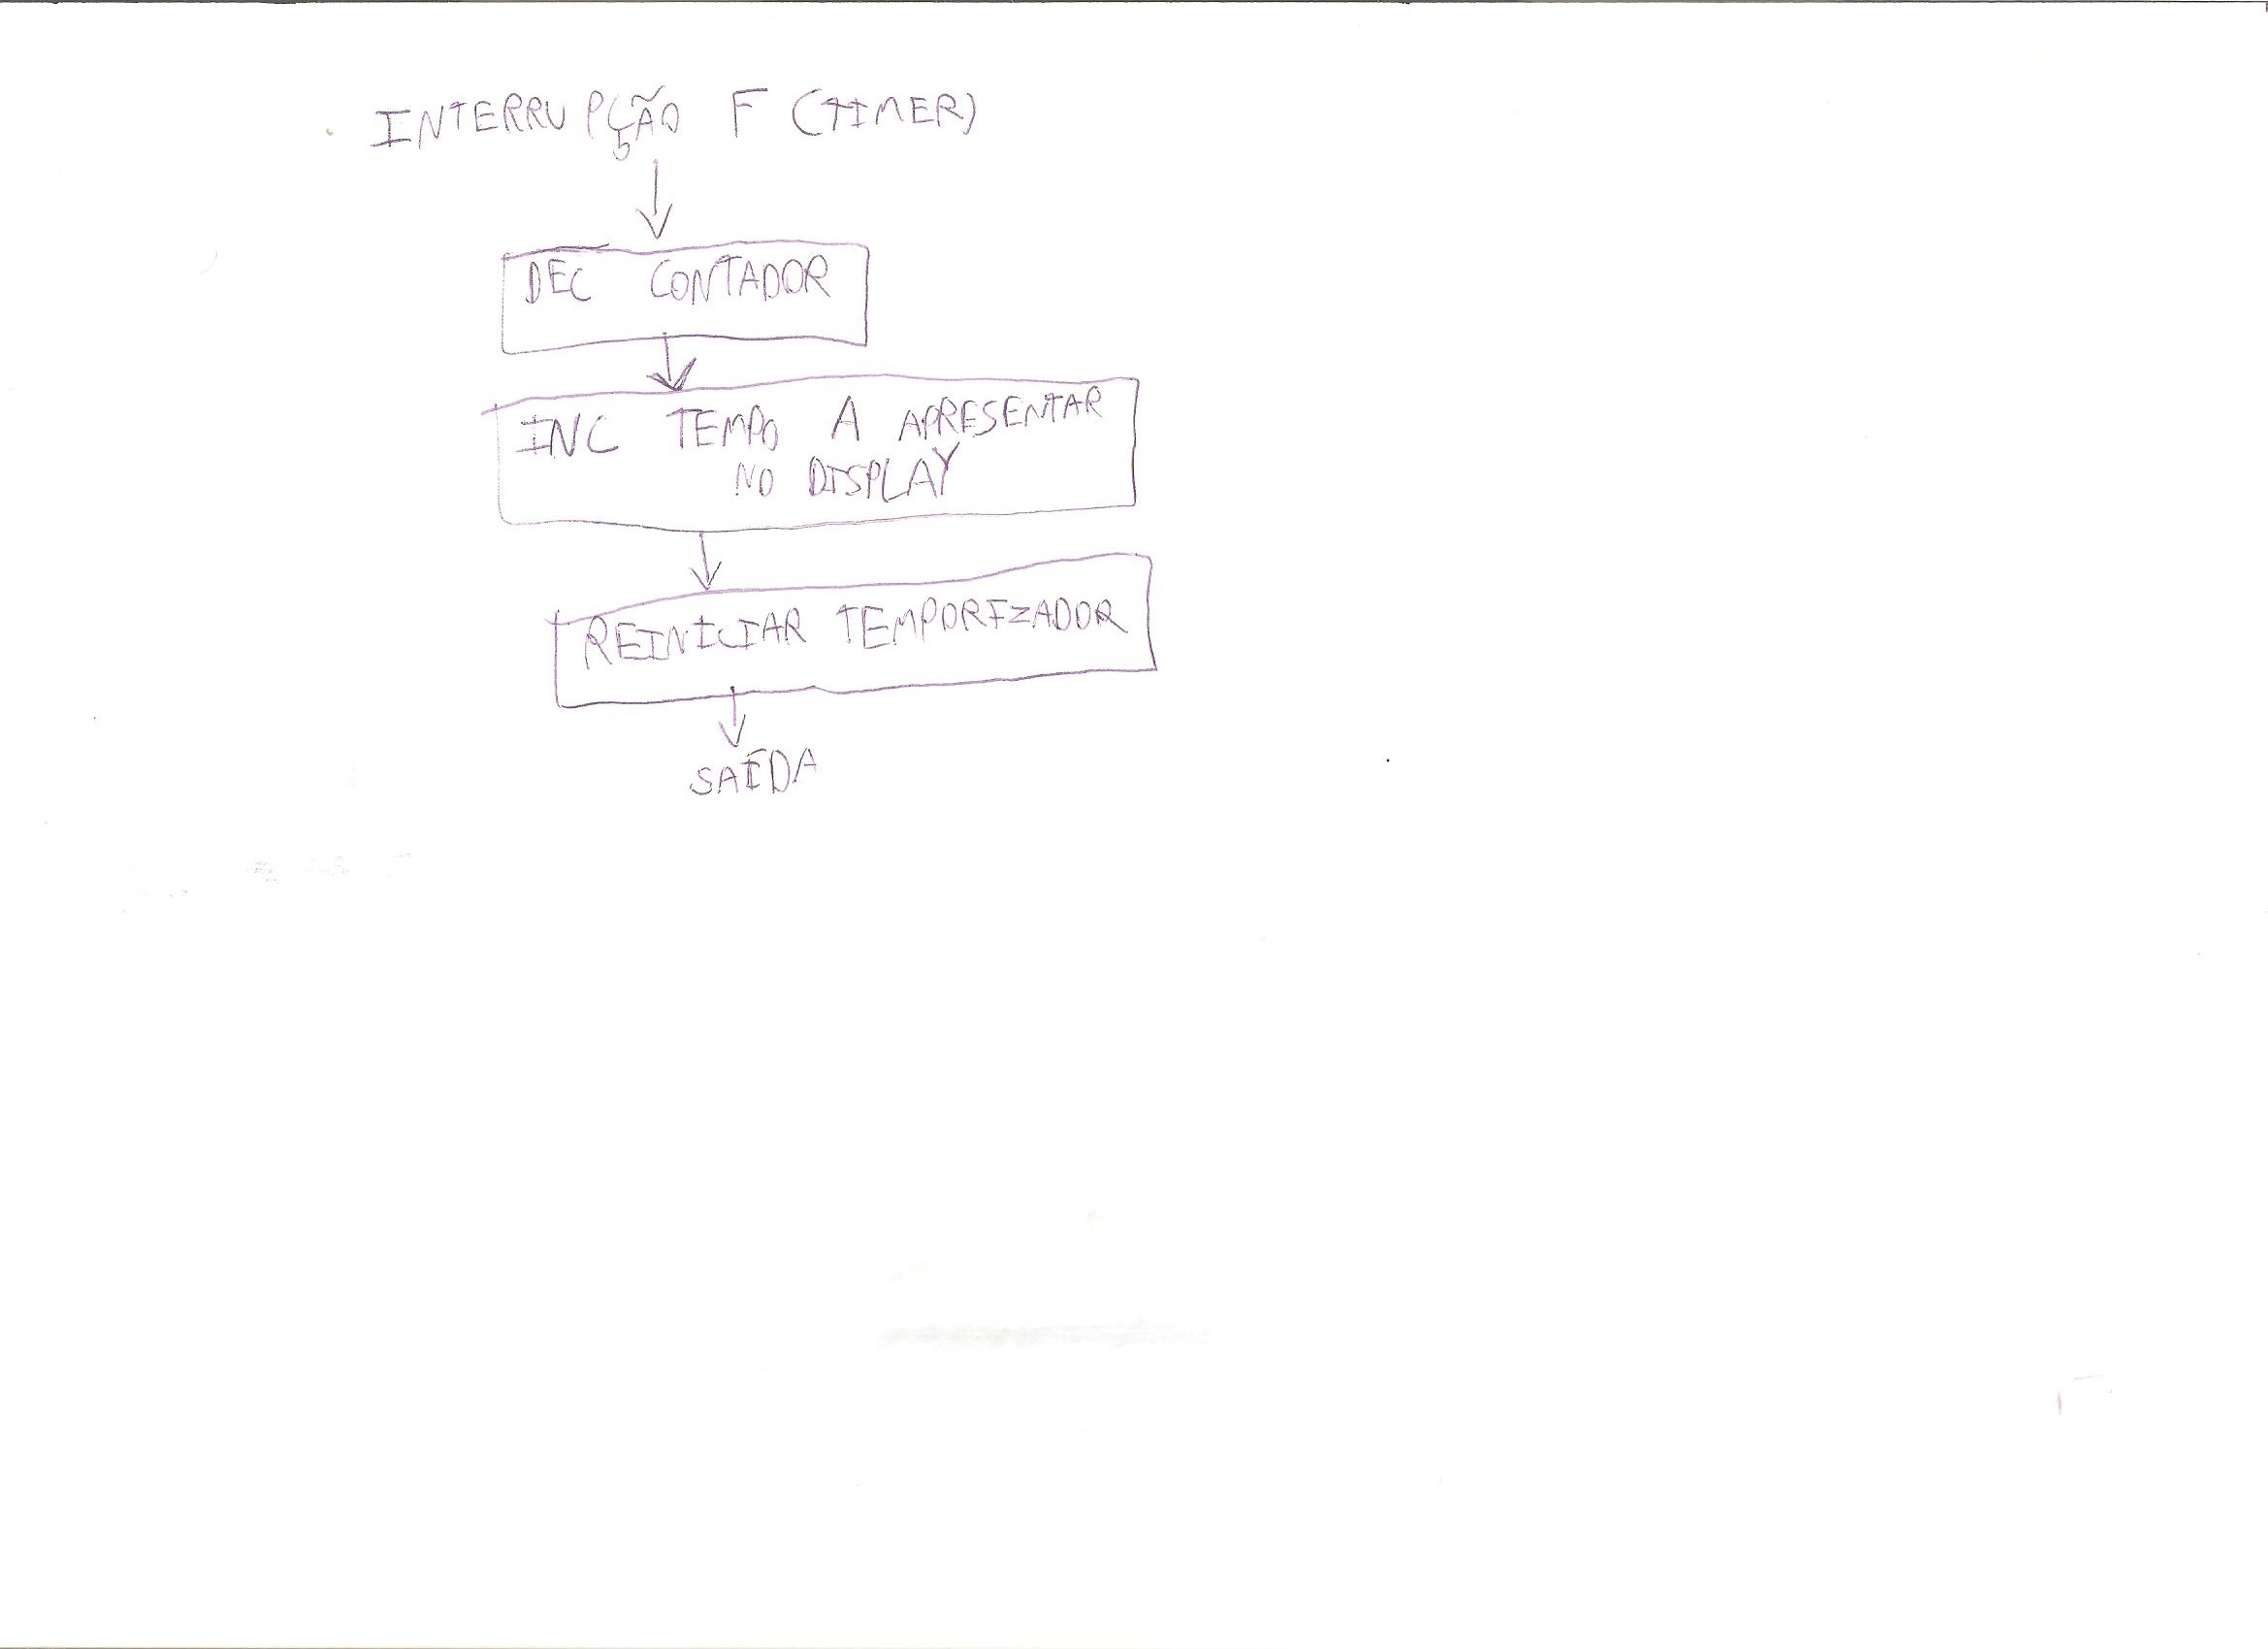 INTERRUPÇÃO F (TIMER)
DEC CONTADOR
INC TEMPO A APRESENTAR
NO DISPLAY
REINICIAR TEMPORIZADOR
SAÍDA